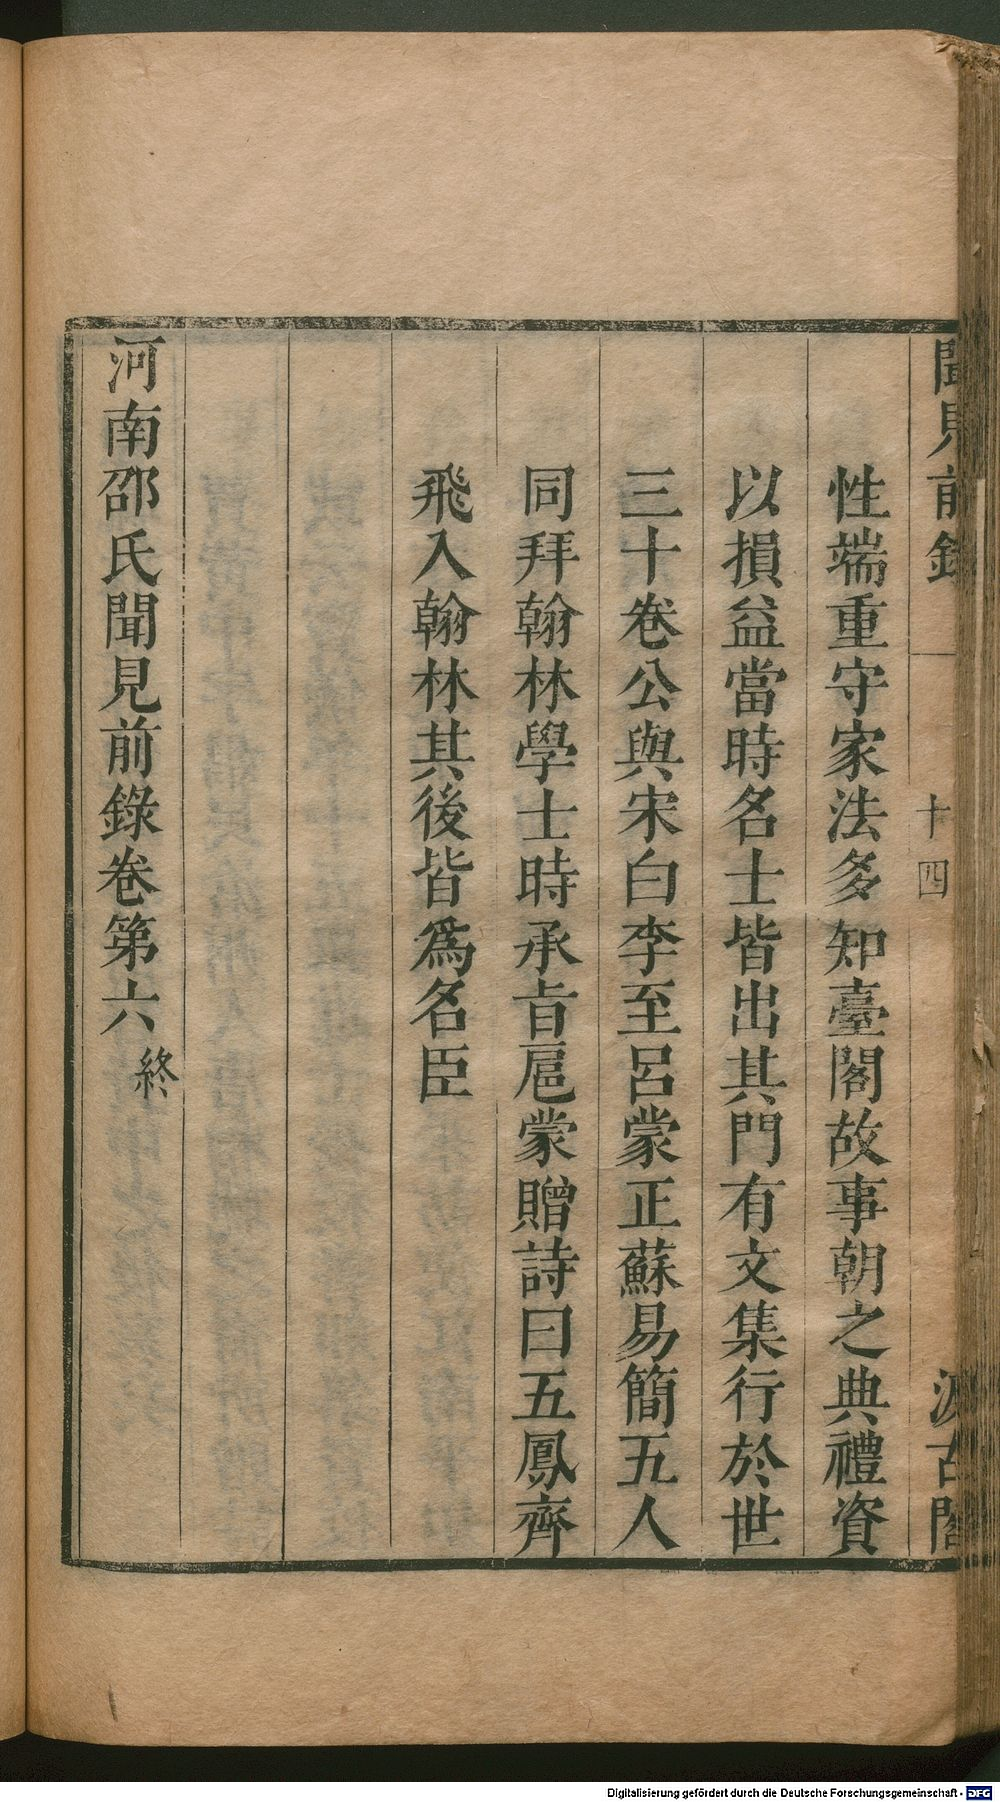 聞見前錄
十四
汲古閣
性端重守家法多知臺閣故事朝之典禮資
以損益當時名士皆出其門有文集行於世
三十卷公與宋白李至呂蒙正蘇易簡五人
同拜翰林學士時承旨扈蒙贈詩曰五鳳齊
飛入翰林其後皆爲名臣
河南邵氏聞見前錄卷第六終
Digitalisierung gefördert durch die Deutsche Forschungsgemeinschaft - DFG